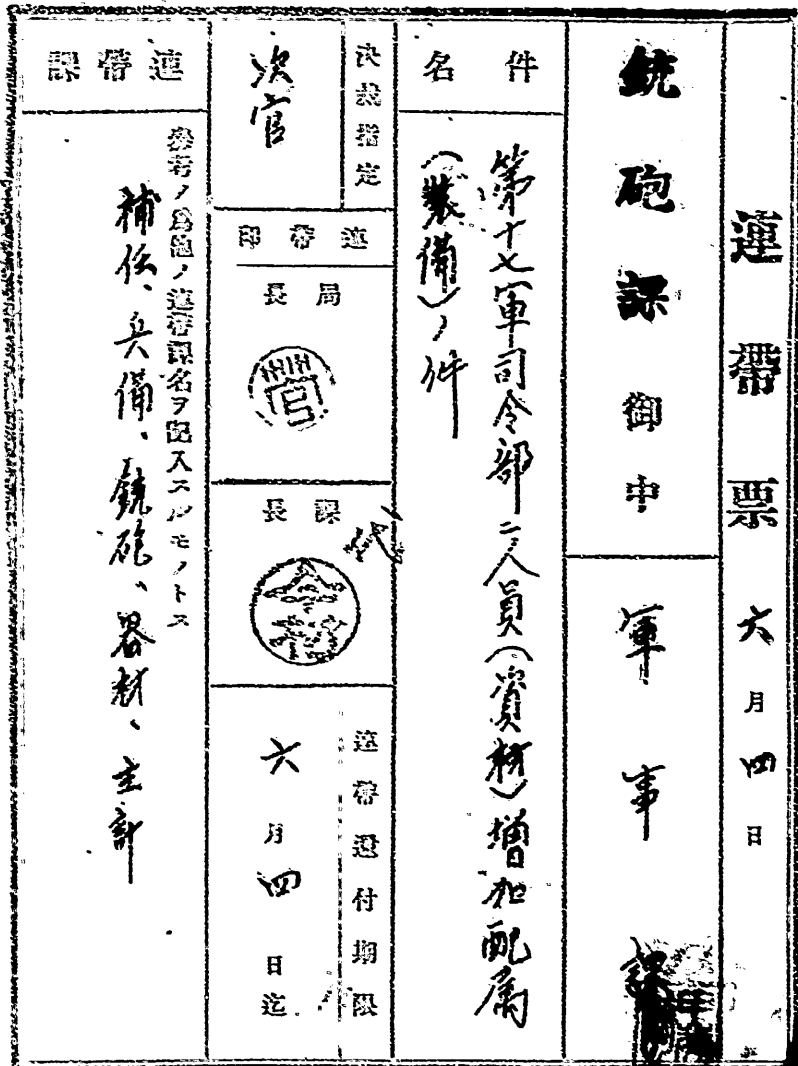 連帶票 六月四日
銃砲課御中
軍事課
件名
第十七軍司令部ニ人員(資材)増加配属
(装備)ノ件
決裁指定
次官
連帶印
局長
課長
代
連帶還付期限
六月四日迄
連帶課
参考ノ為他ノ連帶課名ヲ記入スルモノトス
補任、兵備、銃砲、器材、主計